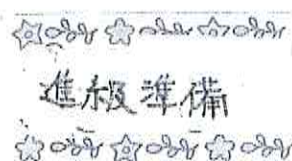 進級準備